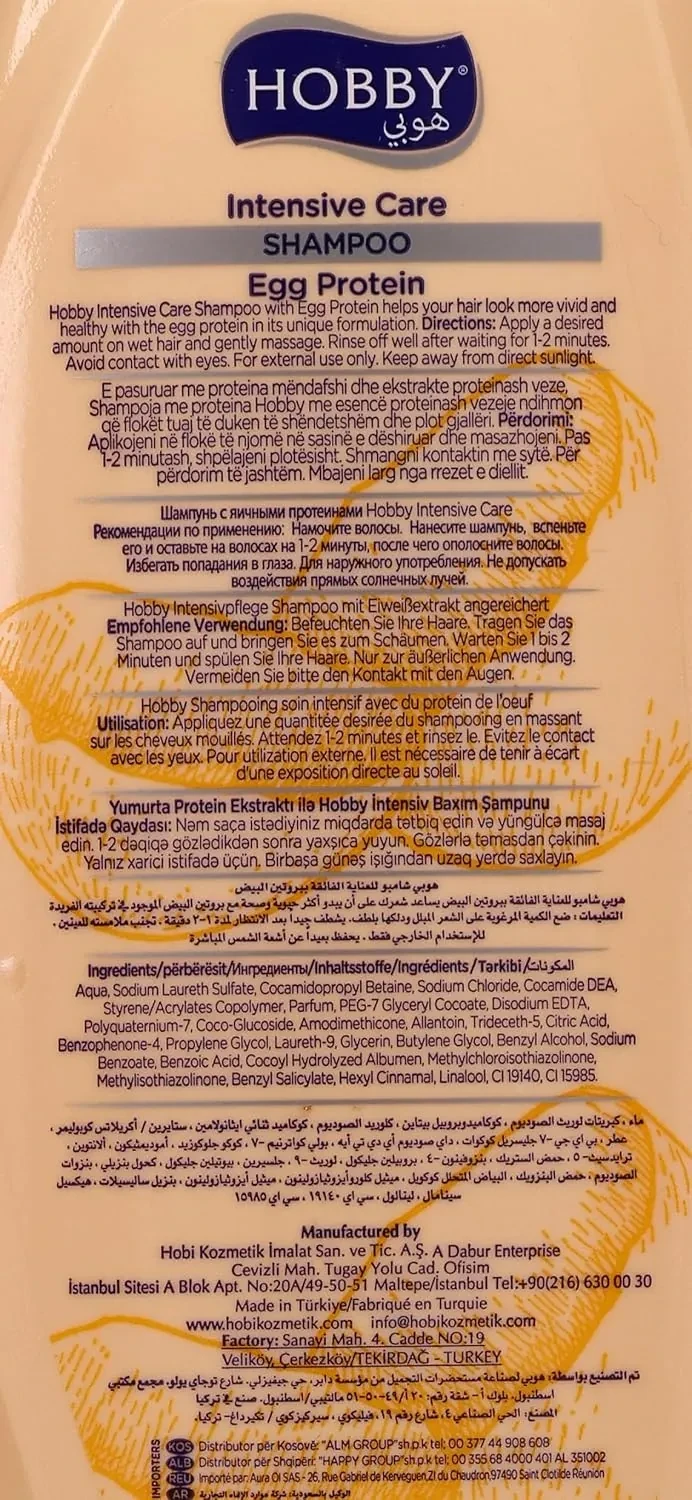 HOBBY®
هوبي
Intensive Care
SHAMPOO
Egg Protein
Hobby Intensive Care Shampoo with Egg Protein helps your hair look more vivid and
healthy with the egg protein in its unique formulation. Directions: Apply a desired
amount on wet hair and gently massage. Rinse off well after waiting for 1-2 minutes.
Avoid contact with eyes. For external use only. Keep away from direct sunlight.
E pasuruar me proteina mëndafshi dhe ekstrakte proteinash veze,
Shampoja me proteina Hobby me esencë proteinash vezeje ndihmon
që flokët tuaj të duken të shëndetshëm dhe plot gjallëri. Përdorimi:
Aplikojeni në flokë të njomë në sasinë e dëshiruar dhe masazhojeni. Pas
1-2 minutash, shpëlajeni plotësisht. Shmangni kontaktin me sytë. Për
përdorim të jashtëm. Mbajeni larg nga rrezet e diellit.
Шампунь с яичными протеинами Hobby Intensive Care
Рекомендации по применению: Намочите волосы. Нанесите шампунь, вспеньте
его и оставьте на волосах на 1-2 минуты, после чего ополосните волосы.
Избегать попадания в глаза. Для наружного употребления. Не допускать
воздействия прямых солнечных лучей.
Hobby Intensivpflege Shampoo mit Eiweißextrakt angereichert
Empfohlene Verwendung: Befeuchten Sie Ihre Haare. Tragen Sie das
Shampoo auf und bringen Sie es zum Schäumen. Warten Sie 1 bis 2
Minuten und spülen Sie Ihre Haare. Nur zur äußerlichen Anwendung.
Vermeiden Sie bitte den Kontakt mit den Augen.
Hobby Shampooing soin intensif avec du protein de l'oeuf
Utilisation: Appliquez une quantitée desirée du shampooing en massant
sur les cheveux mouillés. Attendez 1-2 minutes et rinsez le. Evitez le contact
avec les yeux. Pour utilization externe. Il est nécessaire de tenir à écart
d'une exposition directe au soleil.
Yumurta Protein Ekstraktı ilə Hobby İntensiv Baxım Şampunu
İstifadə Qaydası: Nəm saça istədiyiniz miqdarda tətbiq edin və yüngülcə masaj
edin. 1-2 dəqiqə gözlədikdən sonra yaxşıca yuyun. Gözlərlə təmasdan çəkinin.
Yalnız xarici istifadə üçün. Birbaşa günəş işığından uzaq yerdə saxlayın.
هوبي شامبو للعناية الفائقة ببروتين البيض
هوبي شامبو للعناية الفائقة ببروتين البيض يساعد شعرك على أن يبدو أكثر حيوية وصحة مع بروتين البيض الموجود في تركيبته الفريدة
التعليمات : ضع الكمية المرغوبة على الشعر المبلل ودلكها بلطف. يشطف جيدا بعد الانتظار لمدة ١-٢ دقيقة . تجنب ملامسته للعينين .
للإستخدام الخارجي فقط . يحفظ بعيدا عن أشعة الشمس المباشرة
Ingredients/përbërësit/Ингредиенты/Inhaltsstoffe/Ingrédients/Tərkibi/المكونات
Aqua, Sodium Laureth Sulfate, Cocamidopropyl Betaine, Sodium Chloride, Cocamide DEA,
Styrene/Acrylates Copolymer, Parfum, PEG-7 Glyceryl Cocoate, Disodium EDTA,
Polyquaternium-7, Coco-Glucoside, Amodimethicone, Allantoin, Trideceth-5, Citric Acid,
Benzophenone-4, Propylene Glycol, Laureth-9, Glycerin, Butylene Glycol, Benzyl Alcohol, Sodium
Benzoate, Benzoic Acid, Cocoyl Hydrolyzed Albumen, Methylchloroisothiazolinone,
Methylisothiazolinone, Benzyl Salicylate, Hexyl Cinnamal, Linalool, CI 19140, CI 15985.
ماء ، كبريتات لوريث الصوديوم ، كوكاميدوبروبيل بيتاين ، كلوريد الصوديوم ، كوكاميد ثنائي ايثانولامين ، ستايرين / أكريلاتس كوبوليمر ،
عطر ، بي اي جي -٧ جليسريل كوكوات ، داي صوديوم أي دي تي أيه ، بولي كواترنيم -٧ ، كوكو جلوكوزيد ، أموديمثيكون ، ألانتوين ،
ترايدسيث- ٥ ، حمض الستريك ، بنزوفينون-٤ ، بروبيلين جليكول ، لوريث -٩ ، جلسيرين ، بيوتيلين جليكول ، كحول بنزيلي ، بنزوات
الصوديوم ، حمض البنزويك ، البياض المتحلل كوكويل ، ميثيل كلوروأيزوثيازولينون ، ميثيل أيزوثيازولينون ، بنزيل ساليسيلات ، هيكسيل
سينامال ، لينالول ، سي اي ١٩١٤٠ ، سي اي ١٥٩٨٥
Manufactured by
Hobi Kozmetik İmalat San. ve Tic. A.Ş. A Dabur Enterprise
Cevizli Mah. Tugay Yolu Cad. Ofisim
İstanbul Sitesi A Blok Apt. No:20A/49-50-51 Maltepe/İstanbul Tel:+90(216) 630 00 30
Made in Türkiye/Fabriqué en Turquie
www.hobikozmetik.com info@hobikozmetik.com
Factory: Sanayi Mah. 4. Cadde NO:19
Veliköy, Çerkezköy/TEKİRDAĞ - TURKEY
تم التصنيع بواسطة: هوبي لصناعة مستحضرات التجميل من مؤسسة دابر، حي جيفيزلي. شارع توجاي يولو. مجمع مكتبي
اسطنبول. بلوك أ - شقة رقم: ٢٠أ/٤٩-٥٠-٥١ مالتيبي/اسطنبول. صنع في تركيا
المصنع: الحي الصناعي ٤، شارع رقم ١٩، فيليكوي ، سيركيزكوي / تكيرداغ- تركيا.
IMPORTERS
KOS Distributor për Kosovë: "ALM GROUP"sh.p.k tel; 00 377 44 908 608
ALB Distributor për Shqipëri: "HAPPY GROUP"sh.p.k tel; 00 355 68 4000 401 AL 351002
REU Importé par: Aura OI SAS - 26, Rue Gabriel de Kerveguen,ZI du Chaudron,97490 Saint Clotilde Réunion
AR الوكيل بالسعودية: شركة موارد الإفاء التجارية